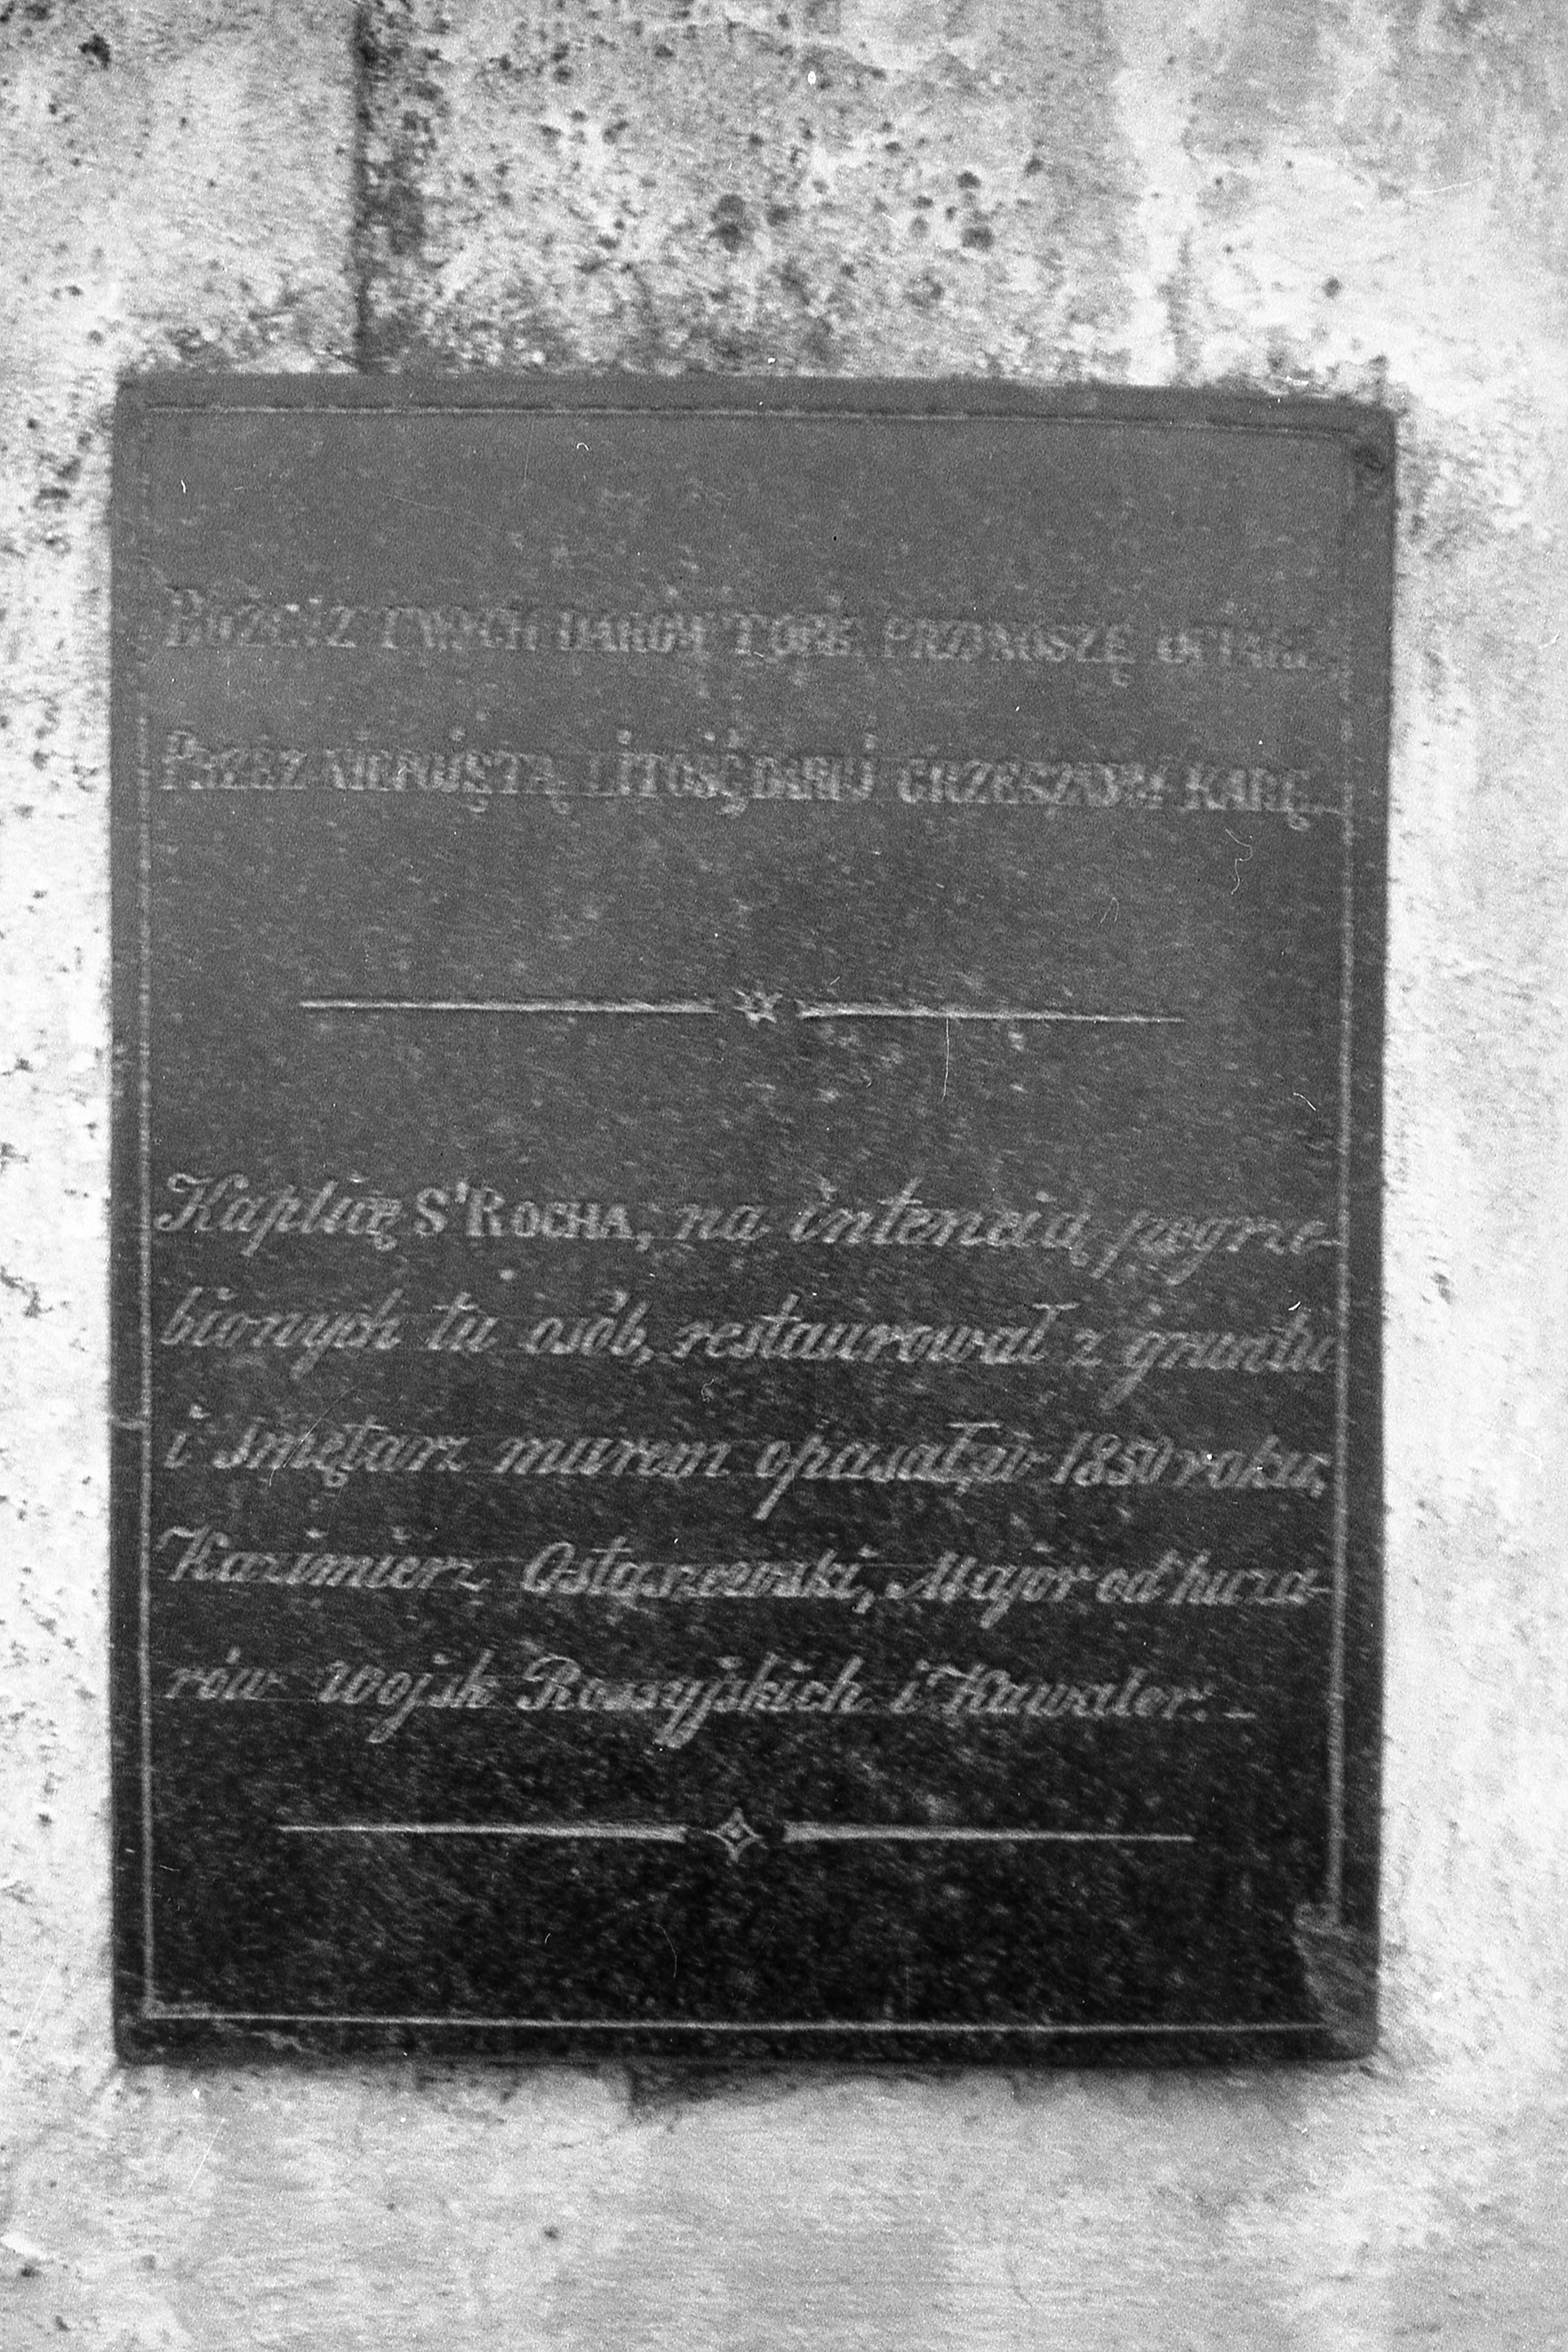 BOŻE! Z TWYCH DARÓW TOBIE PRZYNOSZĘ OFIARĘ
PRZEZ NIEPOJĘTĄ LITOŚĆ DARUJ GRZESZNYM KARĘ
Kaplicę Sº ROCHA, na intencią pogrze-
bionych tu osób, restaurował z gruntu
i smętarz murem opasał, w 1850 roku,
Kazimierz Ostaszewski, Major od huza-
rów wojsk Rossyjskich i Kawaler. –